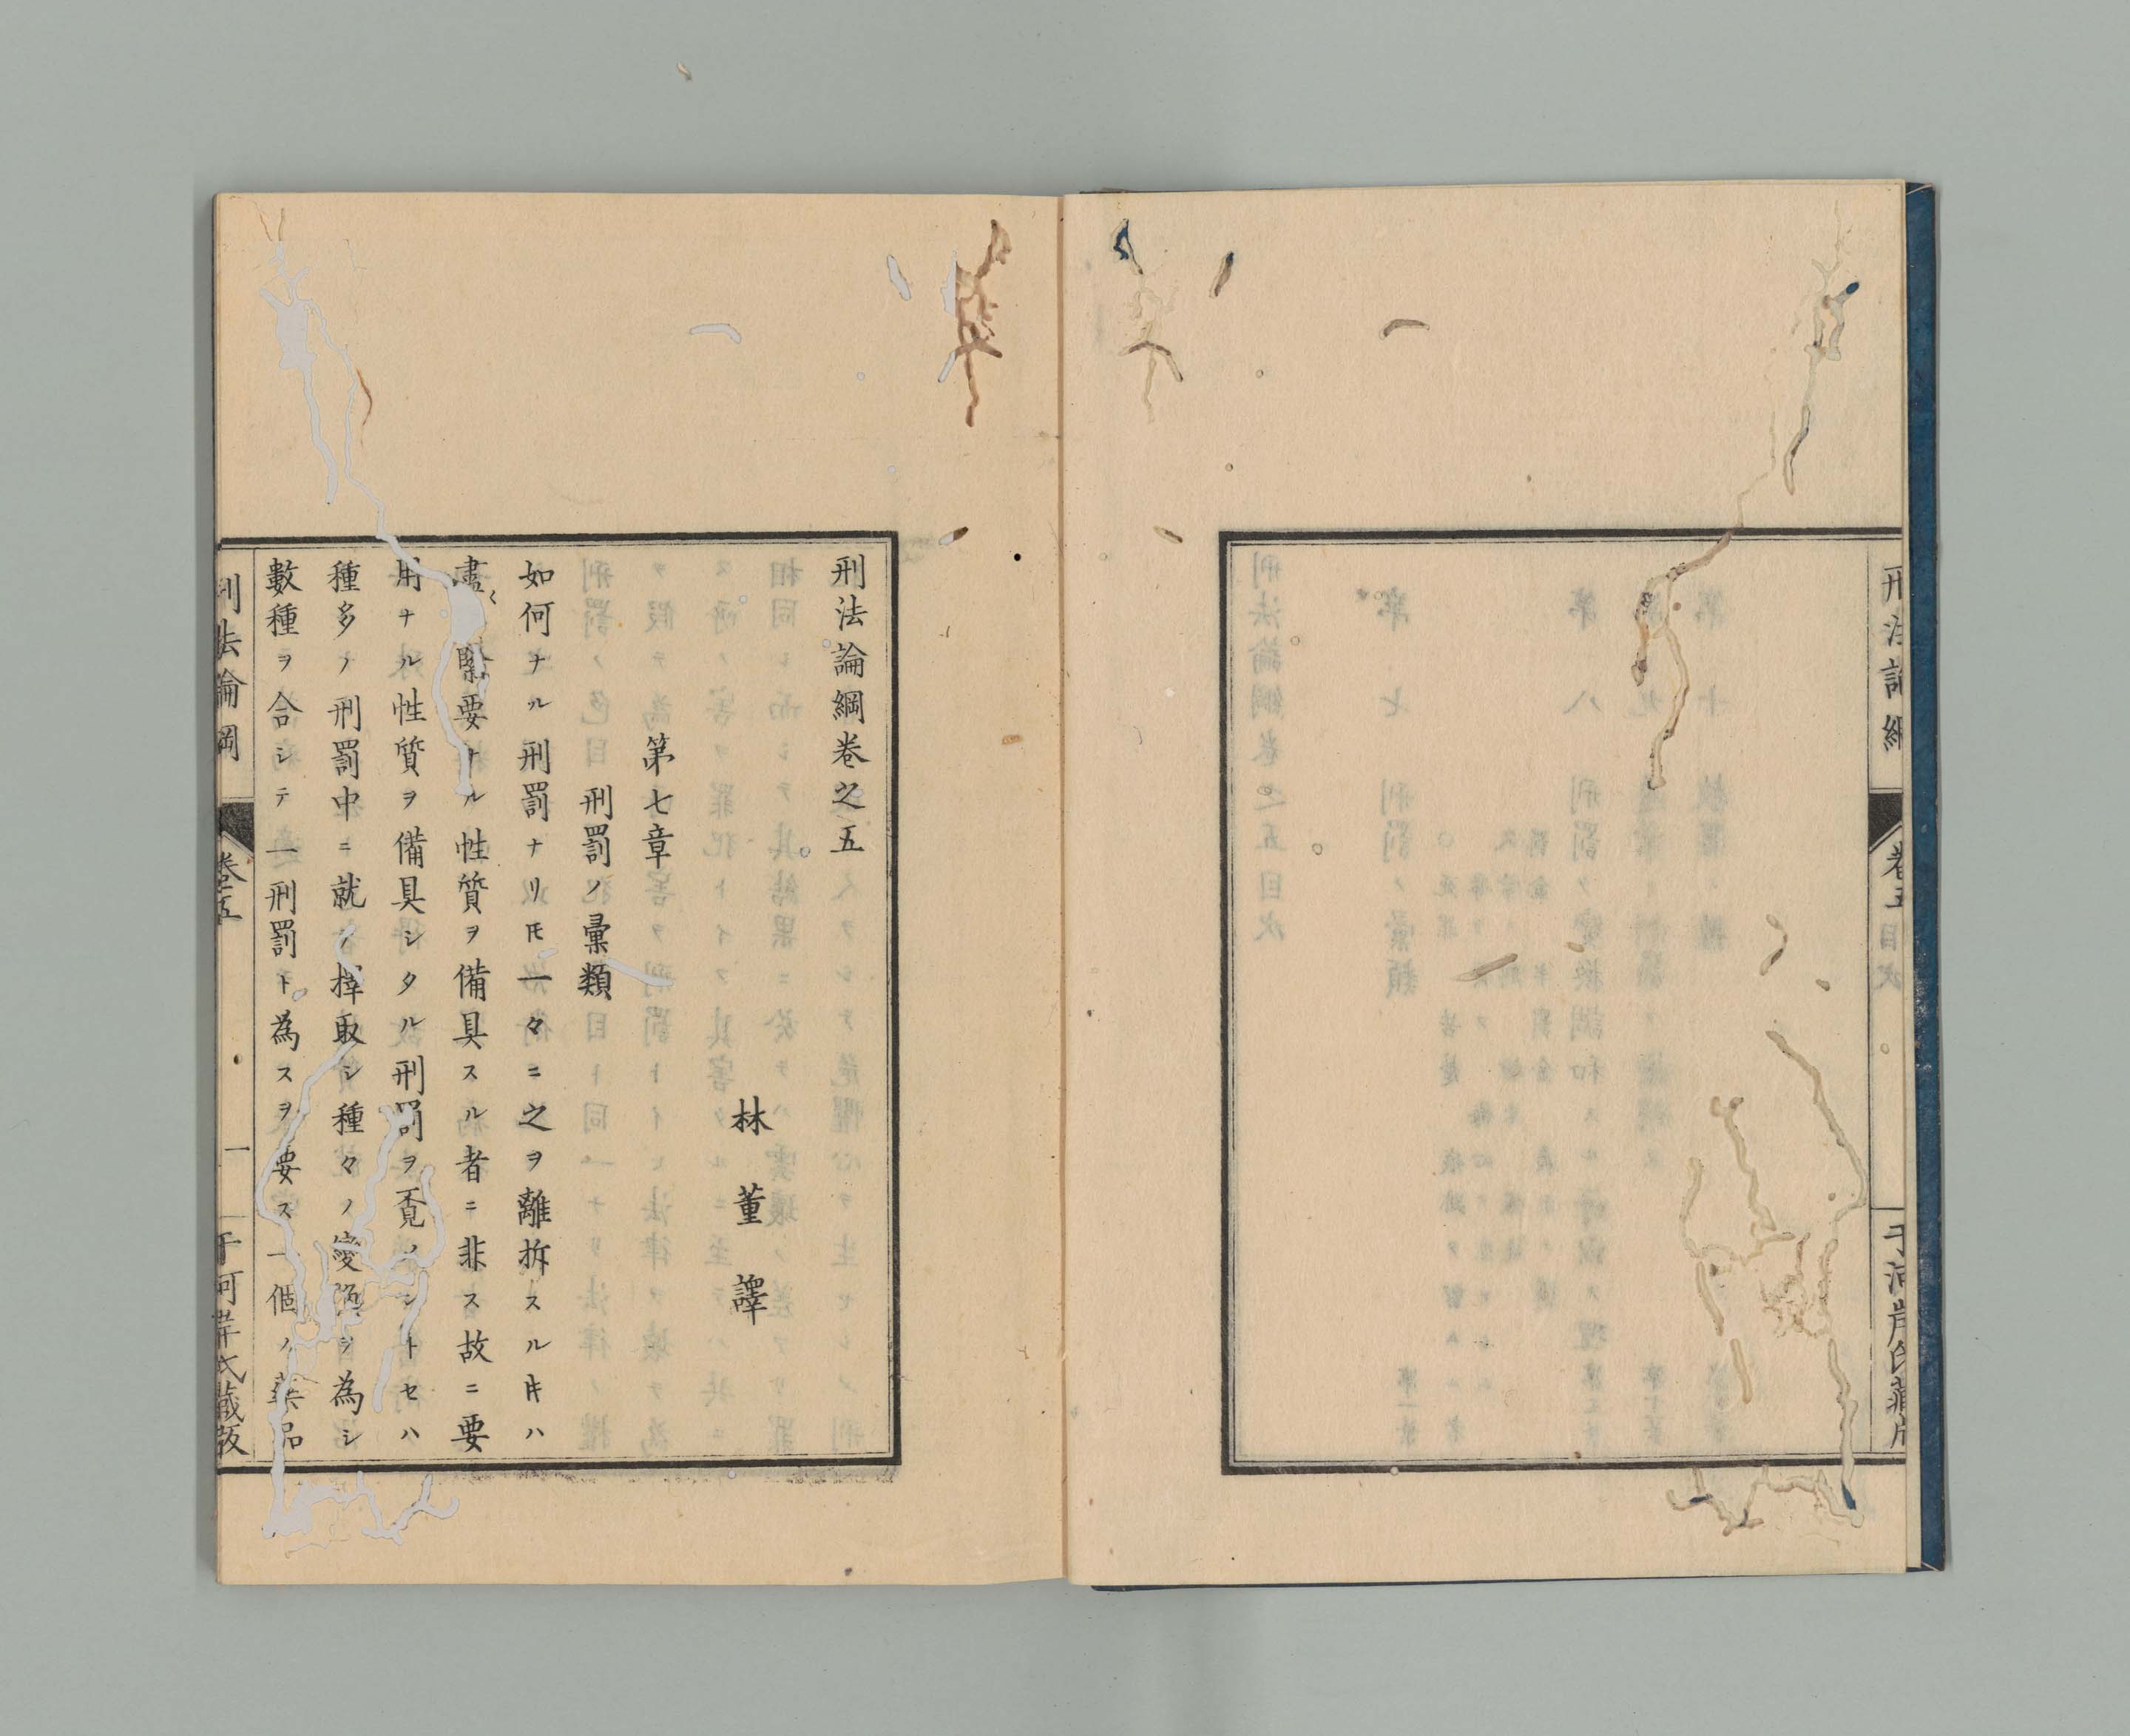 刑法論綱
卷五目次
刑法論綱卷之五
林董譯
第七章
刑罰ノ彙類
如何ナル刑罰ナリㇳモ一々ニ之ヲ離拆スルㇳキハ
盡ク緊要ナル性質ヲ備具スル者ニ非ス故ニ要
用ナル性質ヲ備具シタル刑罰ヲ覓メントセハ
種多ノ刑罰中ニ就キ擇取シ種々ノ變換ヲ為シ
數種ヲ合シテ一刑罰ト為スヲ要ス一個ノ藥品
刑法論綱
卷之五
一
千河岸氏藏版